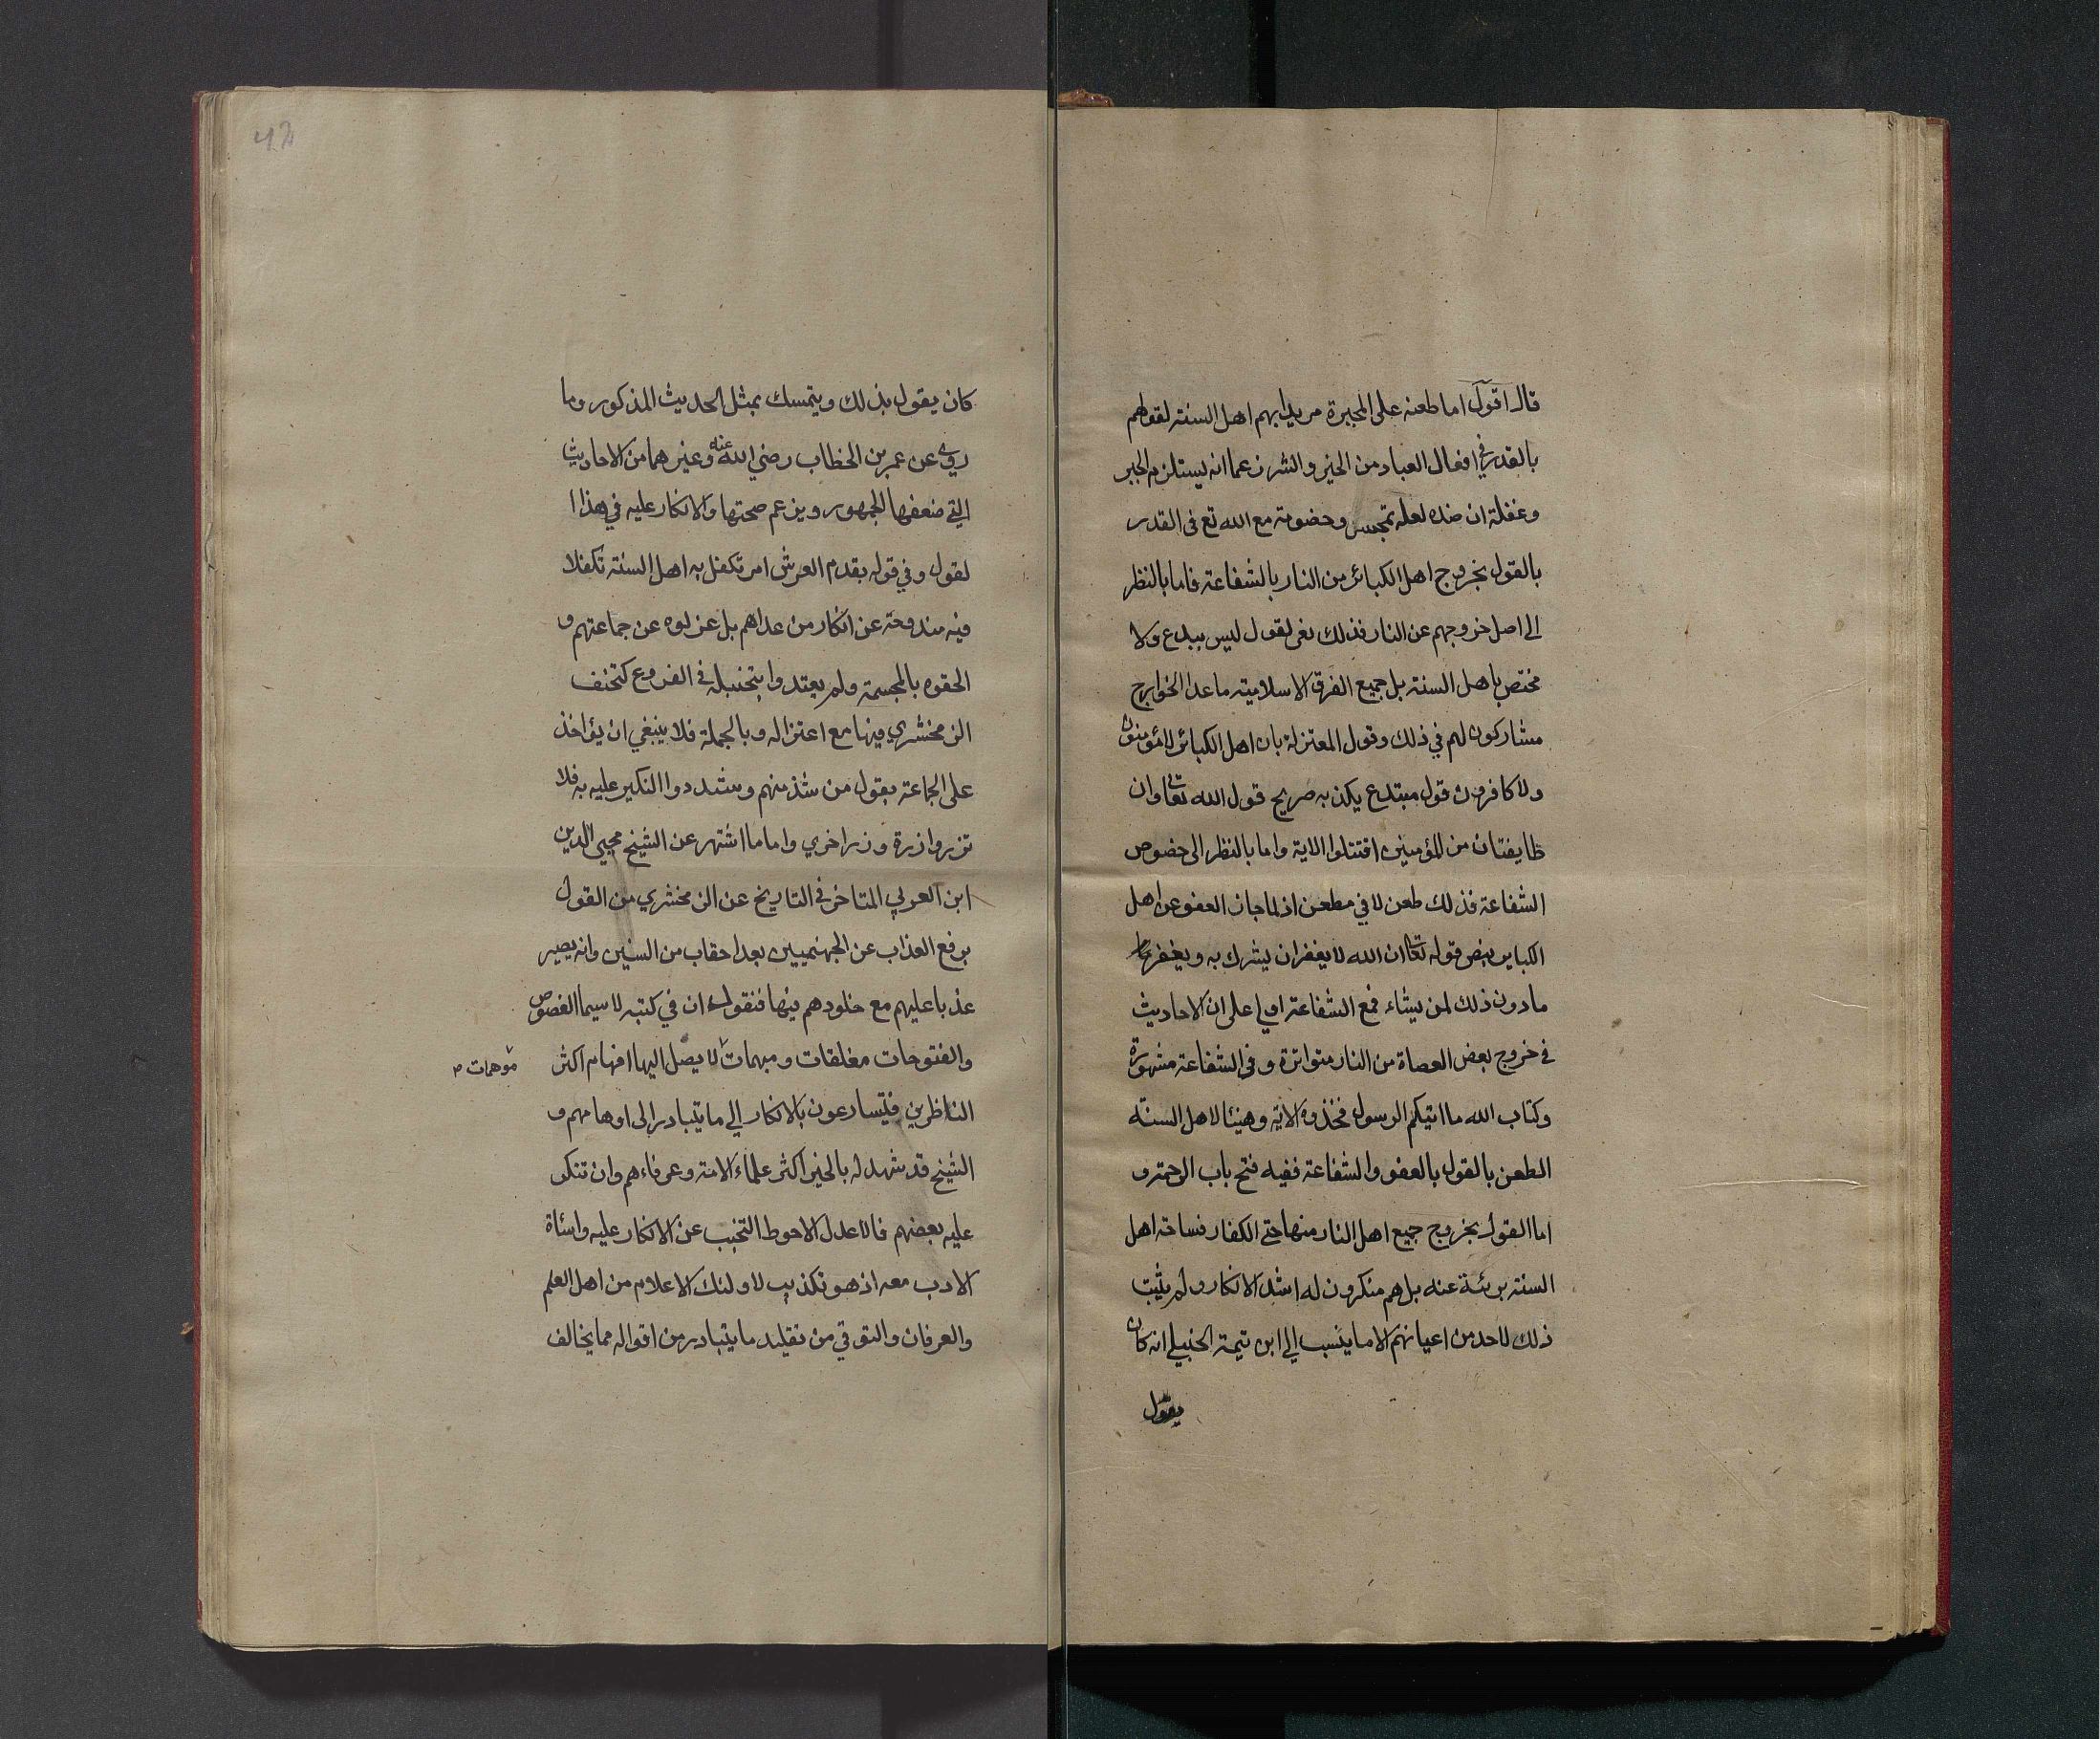 قال اقول اما طعنه على المجبرة مريدا بهم اهل السنة لقولهم
بالقدر في افعال العباد من الخير والشر زعما انه يستلزم الجبر
وغفلة ان ضده لعله تمجس وخضومة مع الله تع فى القدر
بالقول بخروج اهل الكبائر من النار بالشفاعة فاما بالنظر
الى اصل خروجهم عن النار فذلك لقول ليس ببدع ولا
مختص باهل السنة بل جميع الفرق الاسلامية ما عدا الخوارج
مشاركون لهم في ذلك وقول المعتزلة بان اهل الكبائر لا مؤمنون
ولا كافرون قول مبتدع يكذبه صريح قول الله تعالى وان
طايفتان من المؤمنين اقتتلوا الاية واما بالنظر الى خصوص
الشفاعة فذلك طعن لا في مطعن اذ لما جاز العفو عن اهل
الكباير بنص قوله تعالى ان الله لا يغفر ان يشرك به ويغفر
ما دون ذلك لمن يشاء فمع الشفاعة اولى على ان الاحاديث
في خروج بعض العصاة من النار متواترة وفى الشفاعة مشهورة
وكتاب الله ما اتيكم الرسول فخذوه الاية وهنيئا لاهل السنة
الطعن بالقول بالعفو والشفاعة ففيه فتح باب الرحمة و
اما القول بخروج جميع اهل النار منها حتى الكفار فساحة اهل
السنة بريئة عنه بل هم منكرون له اشد الانكار ولم يثبت
ذلك لاحد من اعيانهم الا ما ينسب الي ابن تيمة الحنبلي انه كان
يقول
كان يقول بذلك ويتمسك بمثل الحديث المذكور وما
روي عن عمر بن الخطاب رضي الله عنه وغيرهما من الاحاديث
التي ضعفها الجمهور ويزعم صحتها والانكار عليه في هذا ا
لقول وفي قوله بقدم العرش امر تكفل به اهل السنة تكفلا
فيه مندوحة عن انكار من عداهم بل عزلوه عن جماعتهم و
الحقوه بالمجسمة ولم يعتدوا بتحنبله في الفروع كتحنف
الزمخشري فيها مع اعتزاله وبالجملة فلا ينبغي ان يؤاخذ
على الجماعة بقول من شذ منهم وشددوا النكير عليه به فلا
تزر وازرة وزر اخري واما ما اشتهر عن الشيخ محيي الدين
ابن العربي المتاخر في التاريخ عن الزمخشري من القول
برفع العذاب عن الجهنميين بعد احقاب من السنين وانه يصير
عذبا عليهم مع خلودهم فيها فنقول ان في كتبه لا سيما الفصوص
والفتوحات مغلقات ومبهمات لا يصل اليها افهام اكثر
موهمات
الناظرين فيتسارعون بالانكار الي ما يتبادر الى اوهامهم و
الشيخ قد شهد له بالخير اكثر علماء الامة وعرفاءهم وان تنكر
عليه بعضهم فالاعدل الاحوط التجنب عن الانكار عليه واسئاة
الادب معه اذ هو تكذيب لاولئك الاعلام من اهل العلم
والعرفان والتوقي من تقليد ما يتبادر من اقواله مما يخالف